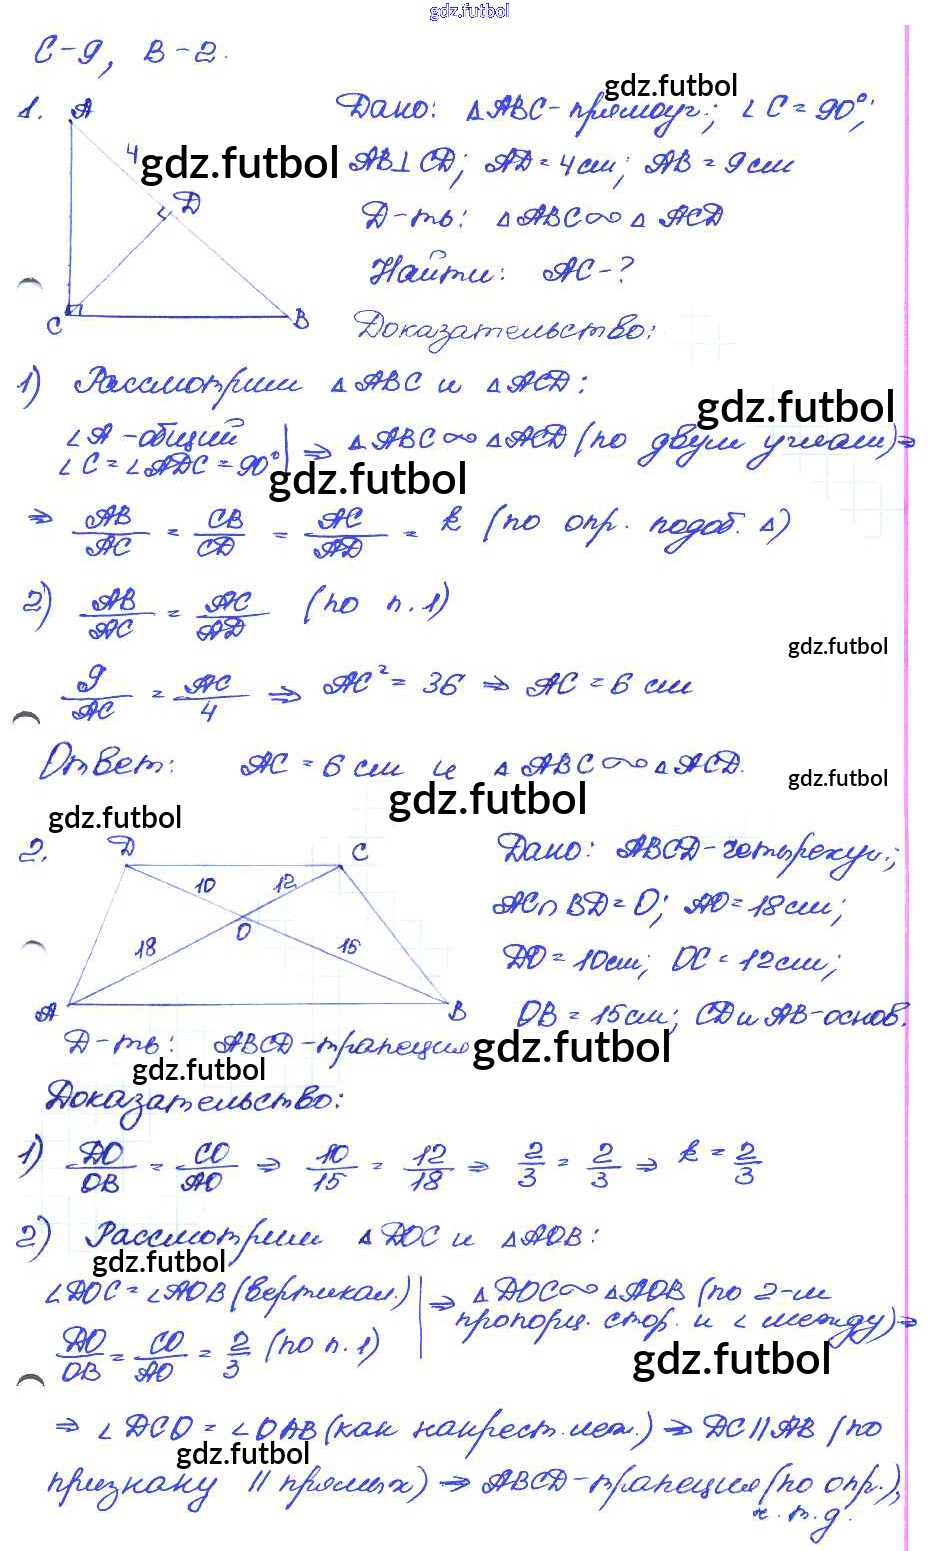 gdz.futbol
С-9, В-2.
1. A Дано: △ABC-прямоуг.; ∠C=90°;
gdz.futbol
4 gdz.futbol AB⊥CD; AD=4см; AB=9см
D Д-ть: △ABC∞△ACD
Найти: AC-?
C B Доказательство:
1) Рассмотрим △ABC и △ACD:
gdz.futbol
∠A-общий
∠C=∠ADC=90° ⇒ △ABC∞△ACD (по двум углам)⇒
gdz.futbol
⇒ AB/AC = CB/CD = AC/AD = k (по опр. подоб. △)
2) AB/AC = AC/AD (по п.1)
gdz.futbol
9/AC = AC/4 ⇒ AC²=36 ⇒ AC=6 см
Ответ: AC=6см и △ABC∞△ACD.
gdz.futbol
gdz.futbol
gdz.futbol
2. D C Дано: ABCD-четырехуг.;
10 12 AC∩BD=O; AO=18см;
O
18 15 DO=10см; OC=12см;
A B OB=15см; CD и AB-основ.
Д-ть: ABCD-трапеция
gdz.futbol
gdz.futbol
Доказательство:
1) DO/OB = CO/AO ⇒ 10/15 = 12/18 ⇒ 2/3 = 2/3 ⇒ k=2/3
2) Рассмотрим △DOC и △AOB:
gdz.futbol
∠DOC=∠AOB (вертикал.) ⇒ △DOC∞△AOB (по 2-м
пропорц. стор. и ∠ между)⇒
DO/OB = CO/AO = 2/3 (по п.1)
gdz.futbol
⇒ ∠DCO=∠OAB (как накрест леж.) ⇒ DC||AB (по
gdz.futbol
признаку || прямых) ⇒ ABCD-трапеция (по опр.),
ч.т.д.